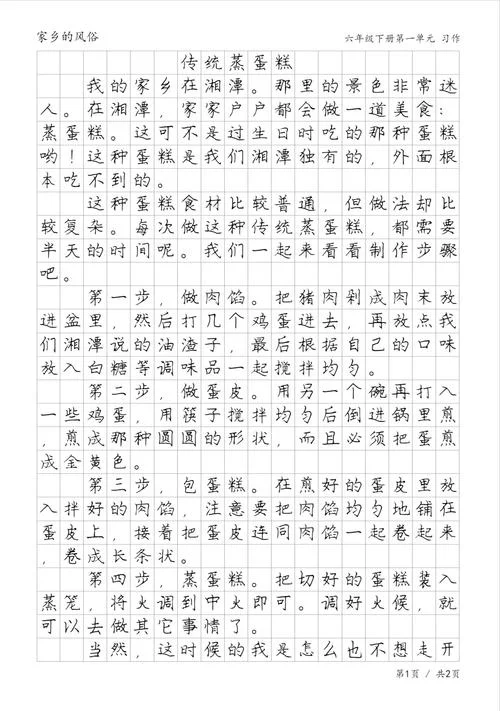 家乡的风俗
六年级下册第一单元 习作
传统蒸蛋糕
我的家乡在湘潭。那里的景色非常迷
人。在湘潭，家家户户都会做一道美食：
蒸蛋糕。这可不是过生日时吃的那种蛋糕
哟！这种蛋糕是我们湘潭独有的，外面根
本吃不到的。
这种蛋糕食材比较普通，但做法却比
较复杂。每次做这种传统蒸蛋糕，都需要
半天的时间呢。我们一起来看看制作步骤
吧。
第一步，做肉馅。把猪肉剁成肉末放
进盆里，然后打几个鸡蛋进去，再放点我
们湘潭说的油渣子，最后根据自己的口味
放入白糖等调味品一起搅拌均匀。
第二步，做蛋皮。用另一个碗再打入
一些鸡蛋，用筷子搅拌均匀后倒进锅里煎
，煎成那种圆圆的形状，而且必须把蛋煎
成金黄色。
第三步，包蛋糕。在煎好的蛋皮里放
入拌好的肉馅，注意要把肉馅均匀地铺在
蛋皮上，接着把蛋皮连同肉馅一起卷起来
，卷成长条状。
第四步，蒸蛋糕。把切好的蛋糕装入
蒸笼，将火调到中火即可。调好火候，就
可以去做其它事情了。
当然，这时候的我是怎么也不想走开
第1页 / 共2页